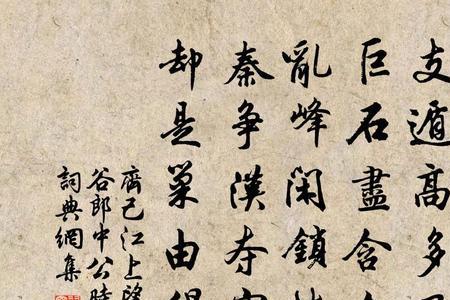 支遁高多
巨石盡含
亂峰閑鎖
秦爭漢奪
却是巢由得
齊己江上望
谷郎中公時
詞典網集